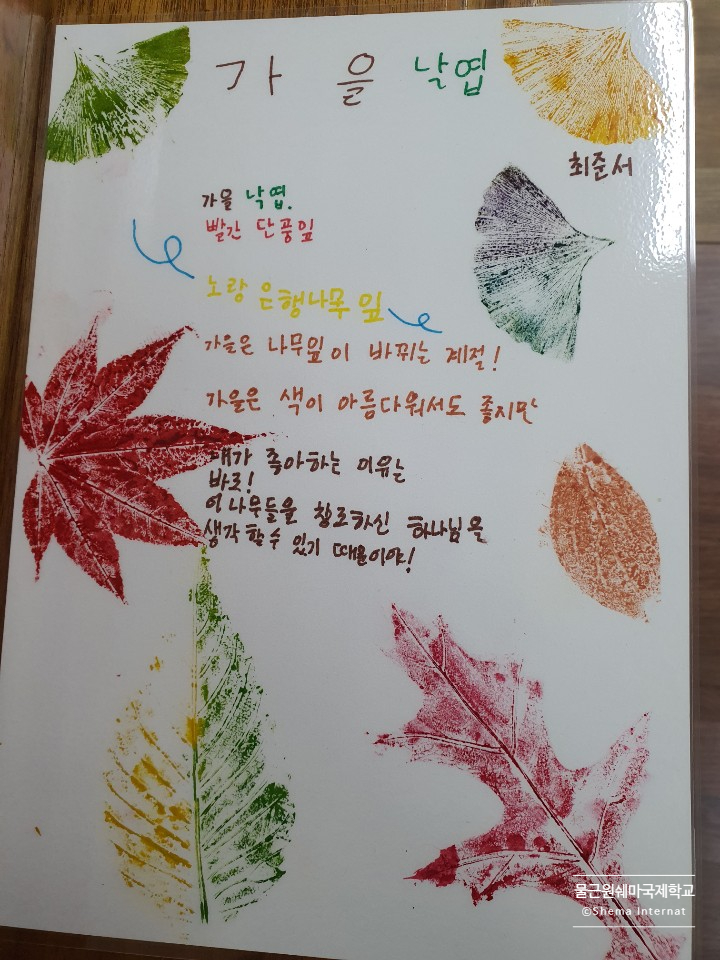 가 을 낙엽
최준서
가을 낙엽.
빨간 단풍잎
노랑 은행나무 잎
가을은 나무잎이 바뀌는 계절!
가을은 색이 아름다워서도 좋지만
내가 좋아하는 이유는
바로!
이 나무들을 창조하신 하나님을
생각할 수 있기 때문이야!
물근원쉐마국제학교
©Shema Internat